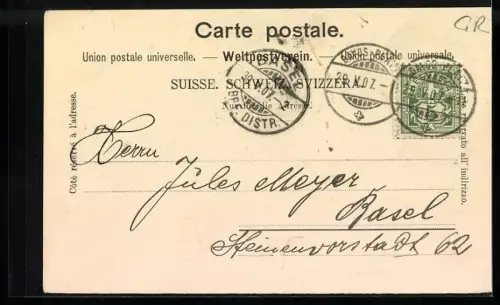 GR
Carte postale.
Union postale universelle. — Weltpostverein. — Union postale universale.
SUISSE. SCHWEIZ. SVIZZERA.
Nur für die Adresse.
Côté réservé à l'adresse.
BASEL
BRF. DISTR.
29.X.07.
29.X.07.
Herrn
Jules Meyer
Basel
Steinenvorstadt 62